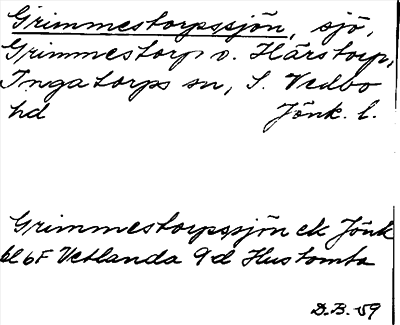 Grimmestorpssjön, sjö,
Grimmestorp o. Härstorp,
Ingatorps sn, S. Vedbo
hd Jönk. l.
Grimmestorpssjön ek Jönk
bl 6F Vetlanda 9d Hustomta
D.B. -59